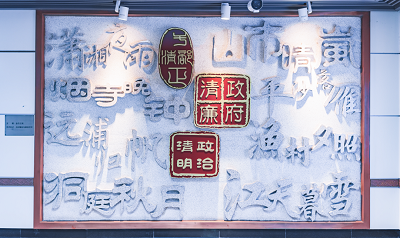 潇湘夜雨
山市晴嵐
烟寺晚钟
平沙落雁
远浦归帆
渔村夕照
洞庭秋月
江天暮雪
干部清正
政府清廉
政治清明